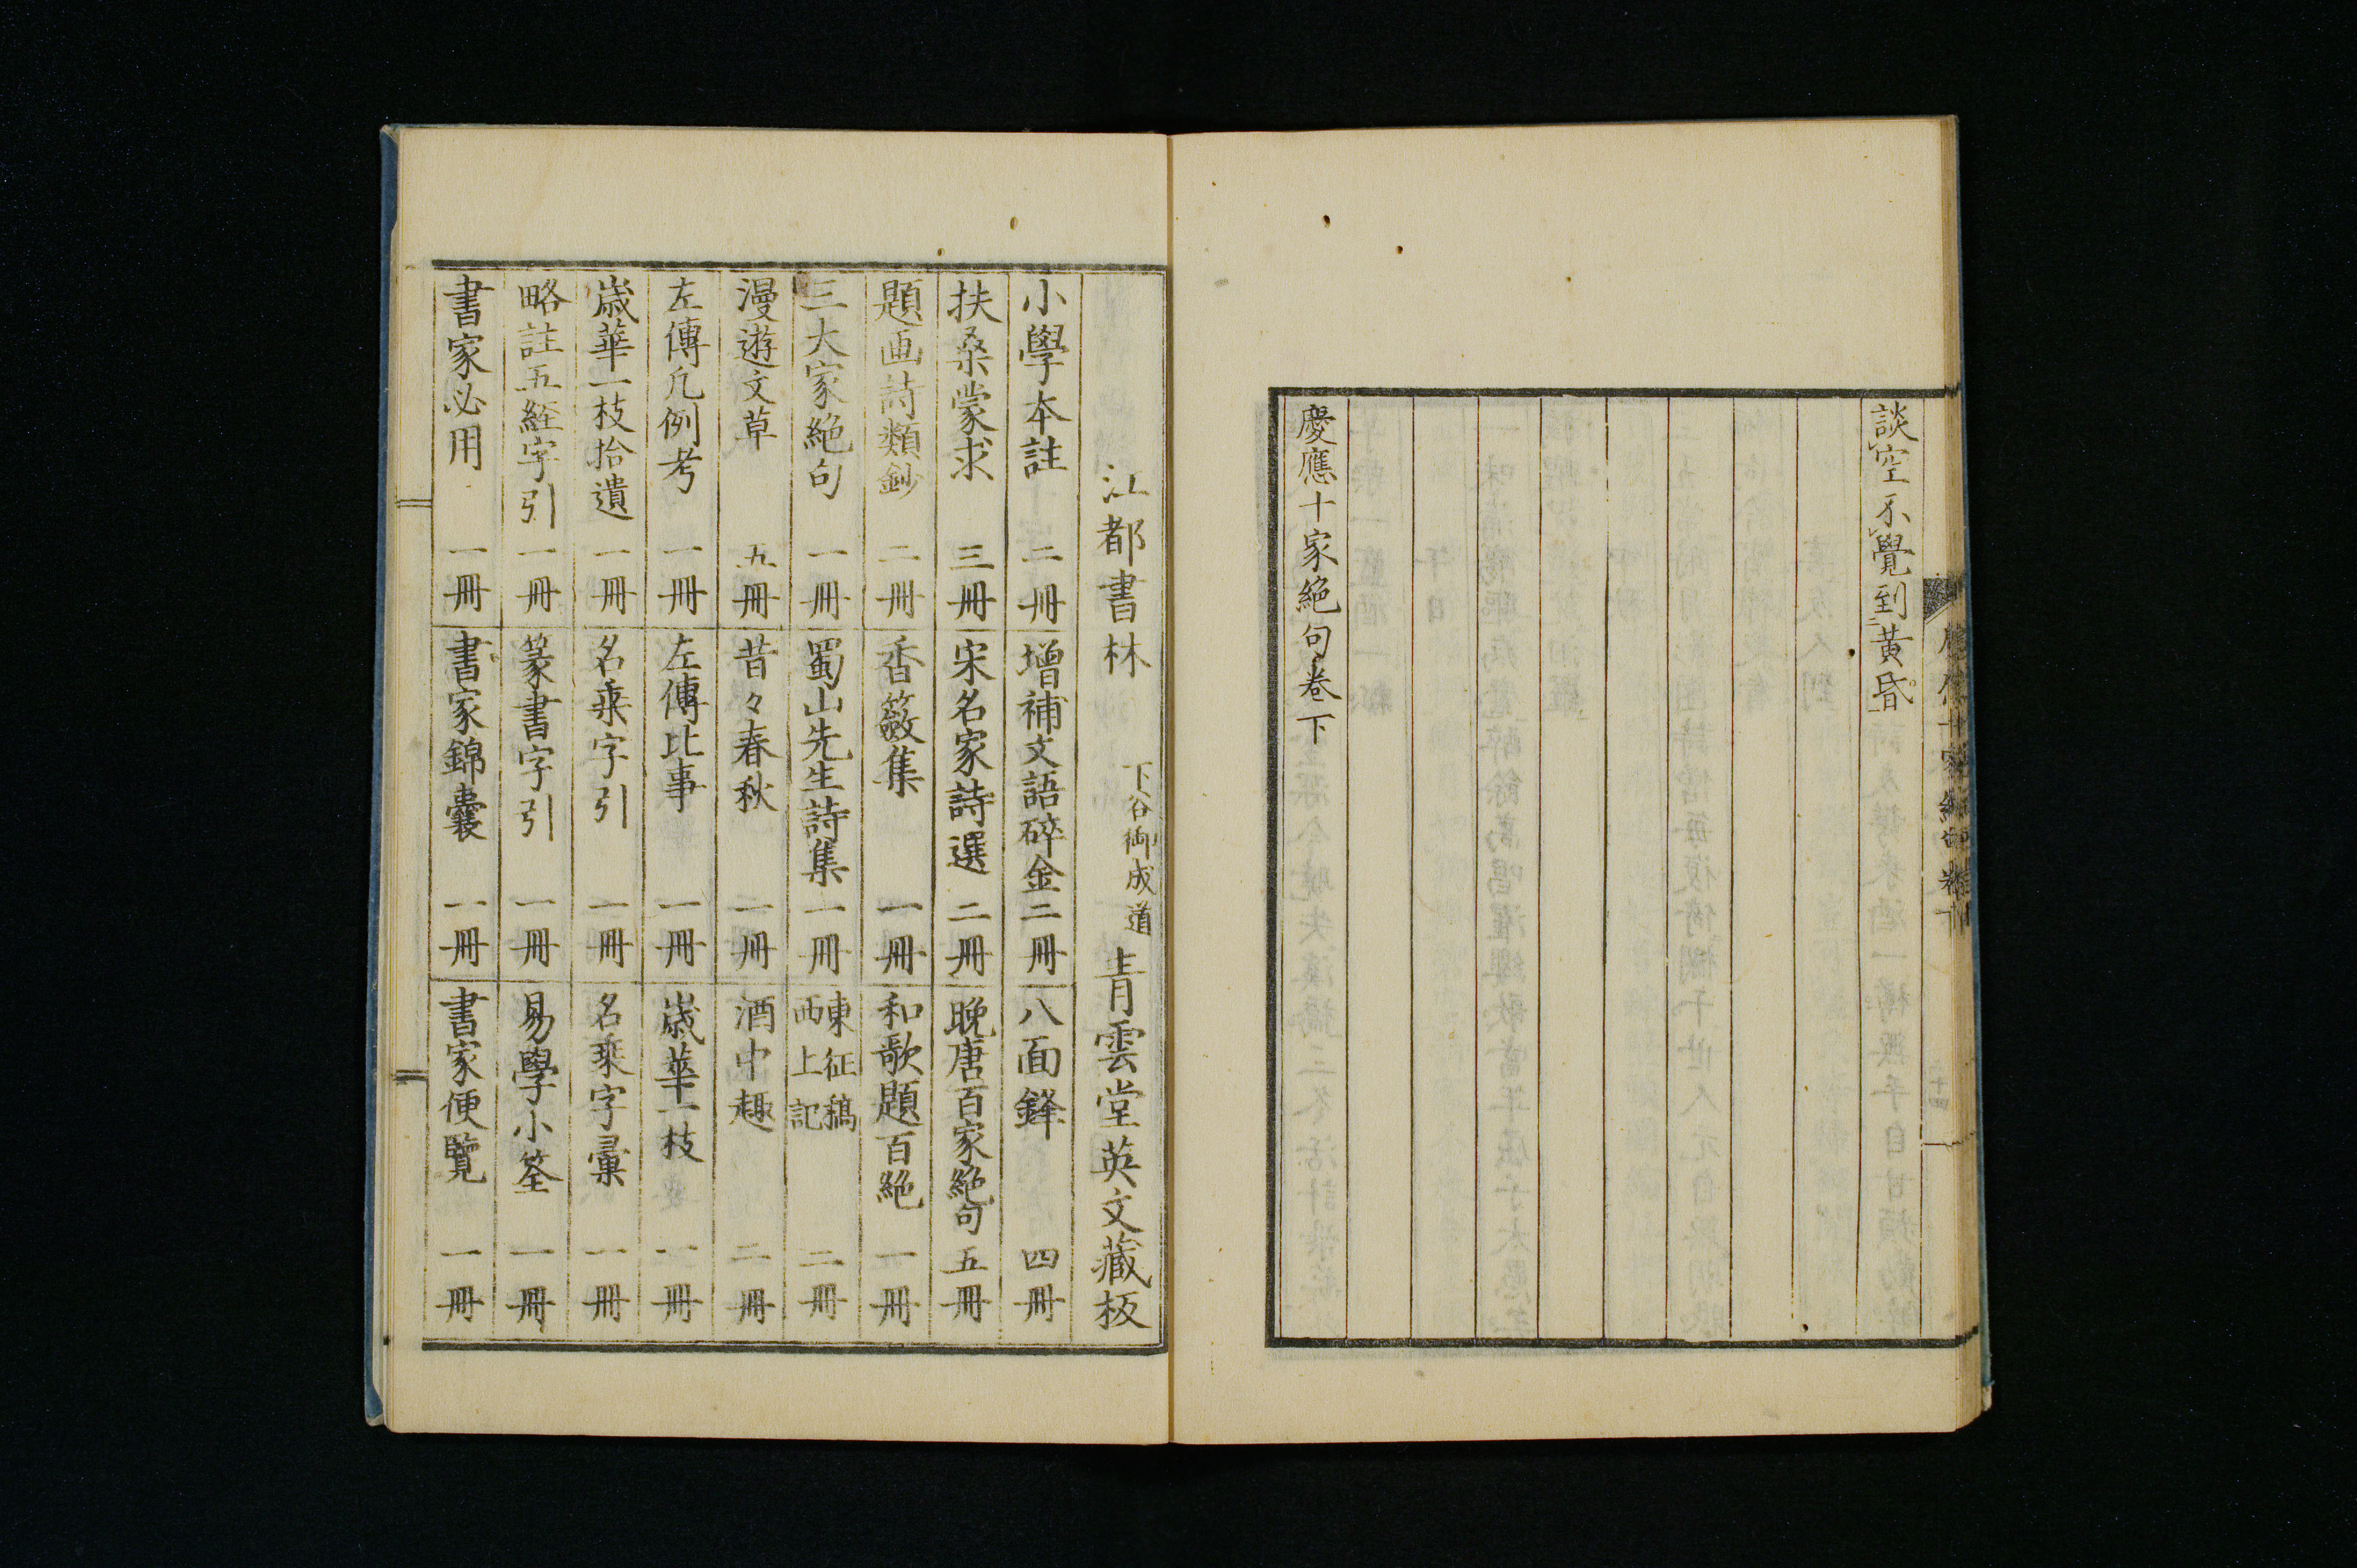 談空不覺到黃昏
慶應十家絶句卷下
江都書林 下谷御成道 青雲堂英文藏板
小學本註 二冊
増補文語碎金 二冊
八面鋒 四冊
扶桑蒙求 三冊
宋名家詩選 二冊
晩唐百家絶句 五冊
題画詩類鈔 二冊
香籢集 一冊
和歌題百絶 一冊
三大家絶句 一冊
蜀山先生詩集 一冊
東征稿
西上記 二冊
漫遊文草 五冊
昔々春秋 一冊
酒中趣 二冊
左傳凡例考 一冊
左傳比事 一冊
歳華一枝 一冊
歳華一枝拾遺 一冊
名乗字引 一冊
名乗字彙 一冊
略註五経字引 一冊
篆書字引 一冊
易學小筌 一冊
書家必用 一冊
書家錦囊 一冊
書家便覽 一冊